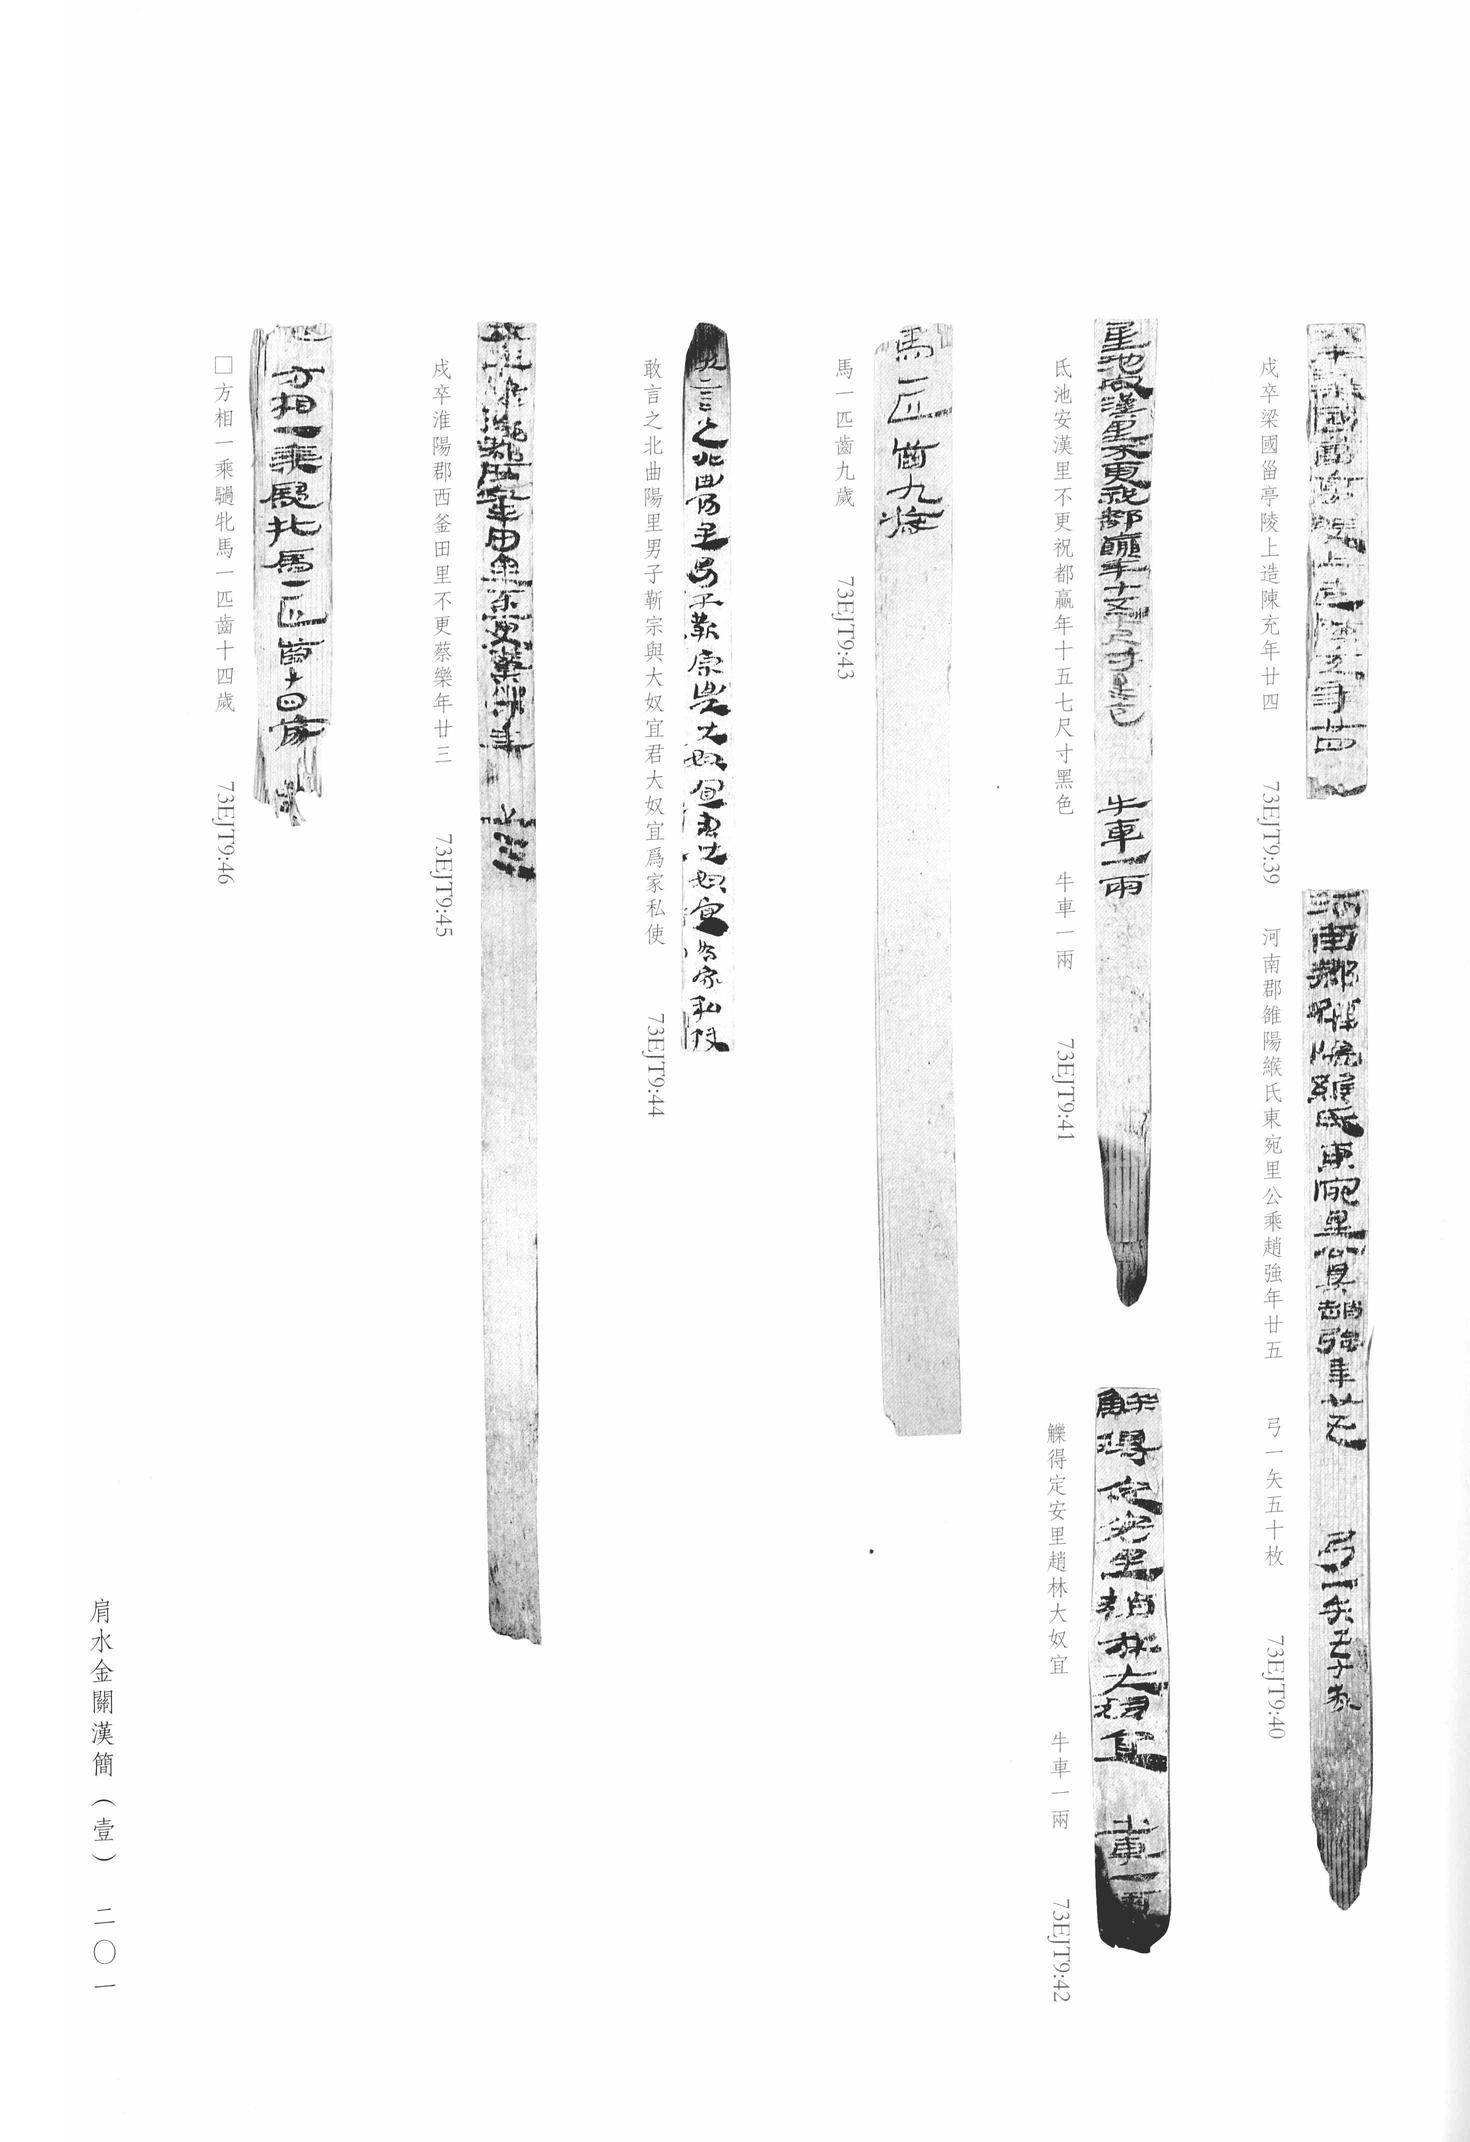 戍卒梁國甾亭陵上造陳充年廿四 73EJT9:39
河南郡雒陽緱氏東宛里公乘趙強年廿五 弓一矢五十枚 73EJT9:40
氐池安漢里不更祝都贏年十五七尺寸黑色 牛車一兩 73EJT9:41
觻得定安里趙林大奴宜 牛車一兩 73EJT9:42
馬一匹齒九歲 73EJT9:43
敢言之北曲陽里男子靳宗與大奴宜君大奴宜爲家私使 73EJT9:44
戍卒淮陽郡西釜田里不更蔡樂年廿三 73EJT9:45
□方相一乘騧牝馬一匹齒十四歲 73EJT9:46
肩水金關漢簡（壹） 二〇一